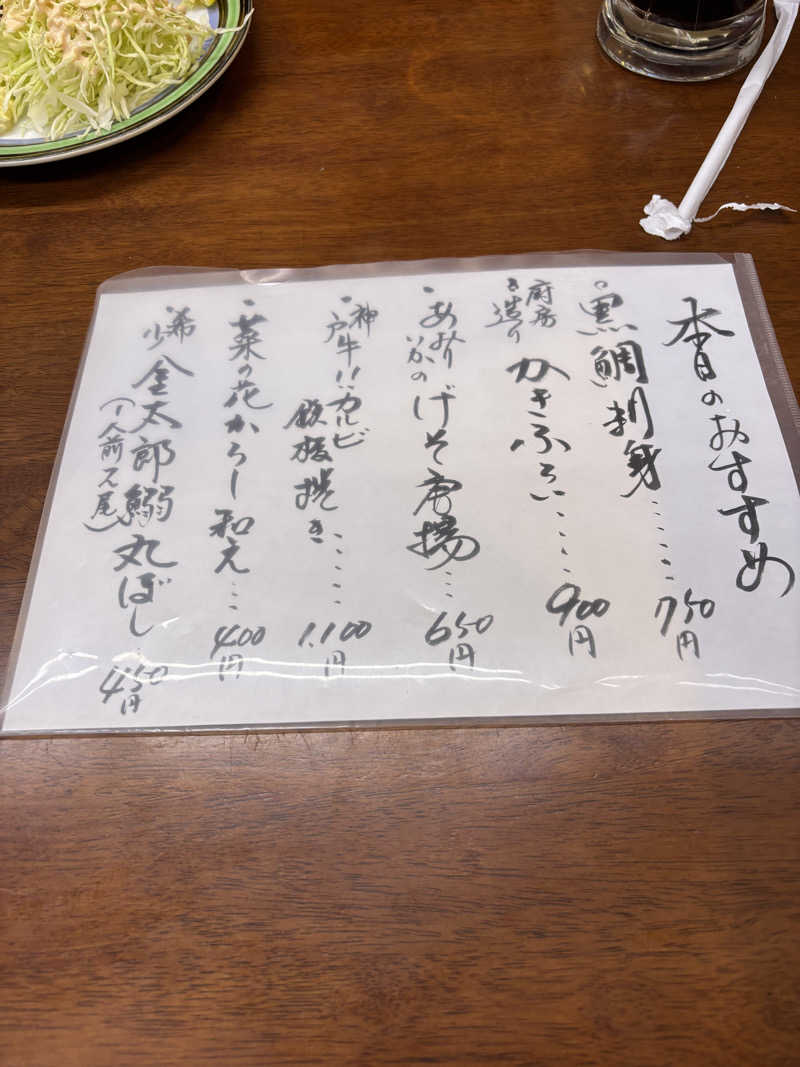 本日のおすすめ
・黒鯛刺身・・・・・750円
・厨房造り かきフライ・・・・900円
・あみり いかの げそ唐揚・・・650円
・神戸牛!!カルビ 鉄板焼き・・・・・1.100円
・菜の花からし和え・・・400円
・希少 金太郎鰯丸ぼし・・450円
(1人前2尾)